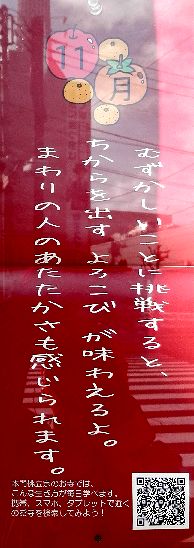 11月
むずかしいことに挑戦すると、
ちからを出す よろこび が味わえるよ。
まわりの人のあたたかさも感じられます。
本門佛立宗のお寺では、
こんな生き方が毎日学べます。
携帯、スマホ、タブレットで近く
のお寺を検索してみよう！